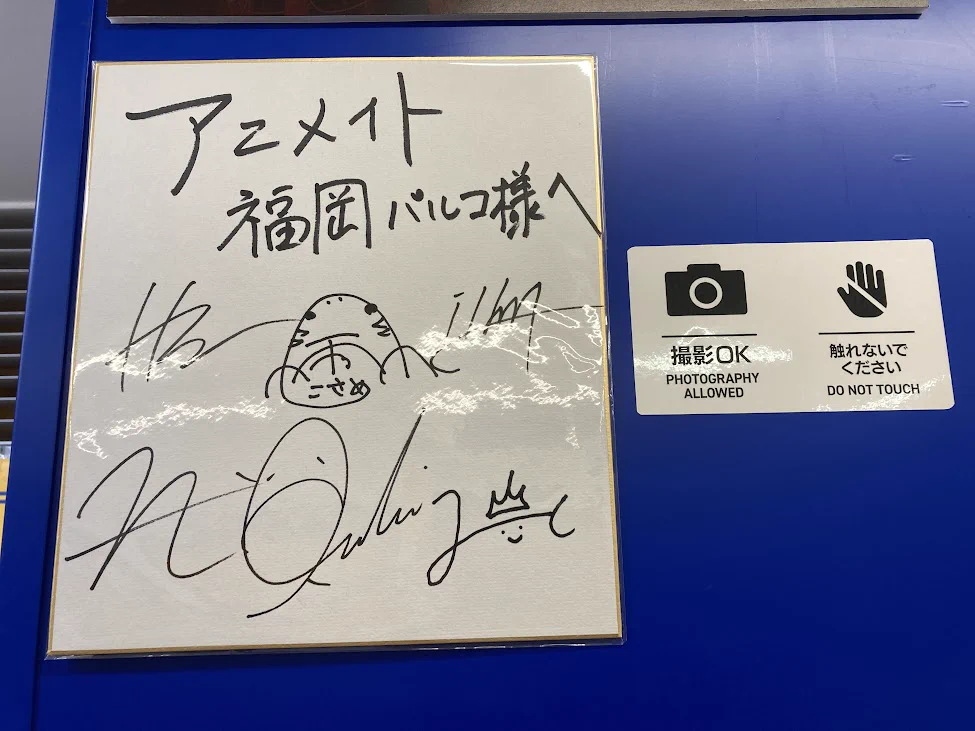 アニメイト
福岡パルコ様へ
雨
こさめ
撮影OK
PHOTOGRAPHY
ALLOWED
触れないで
ください
DO NOT TOUCH